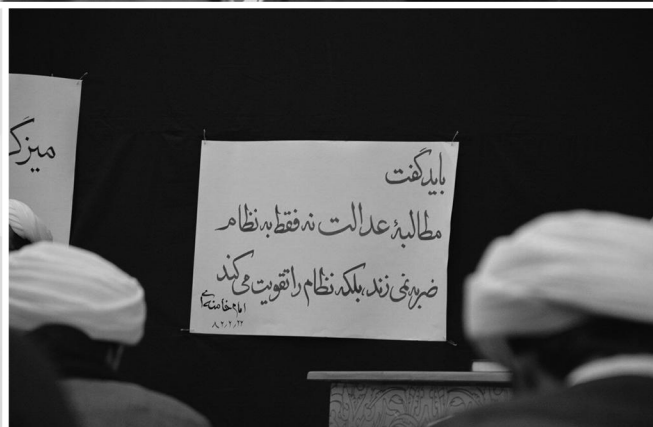 باید گفت
مطالبهٔ عدالت نه فقط به نظام
ضربه نمی زند، بلکه نظام را تقویت می کند
امام خامنه‌ای
۸۲/۲/۲۲
میزگ